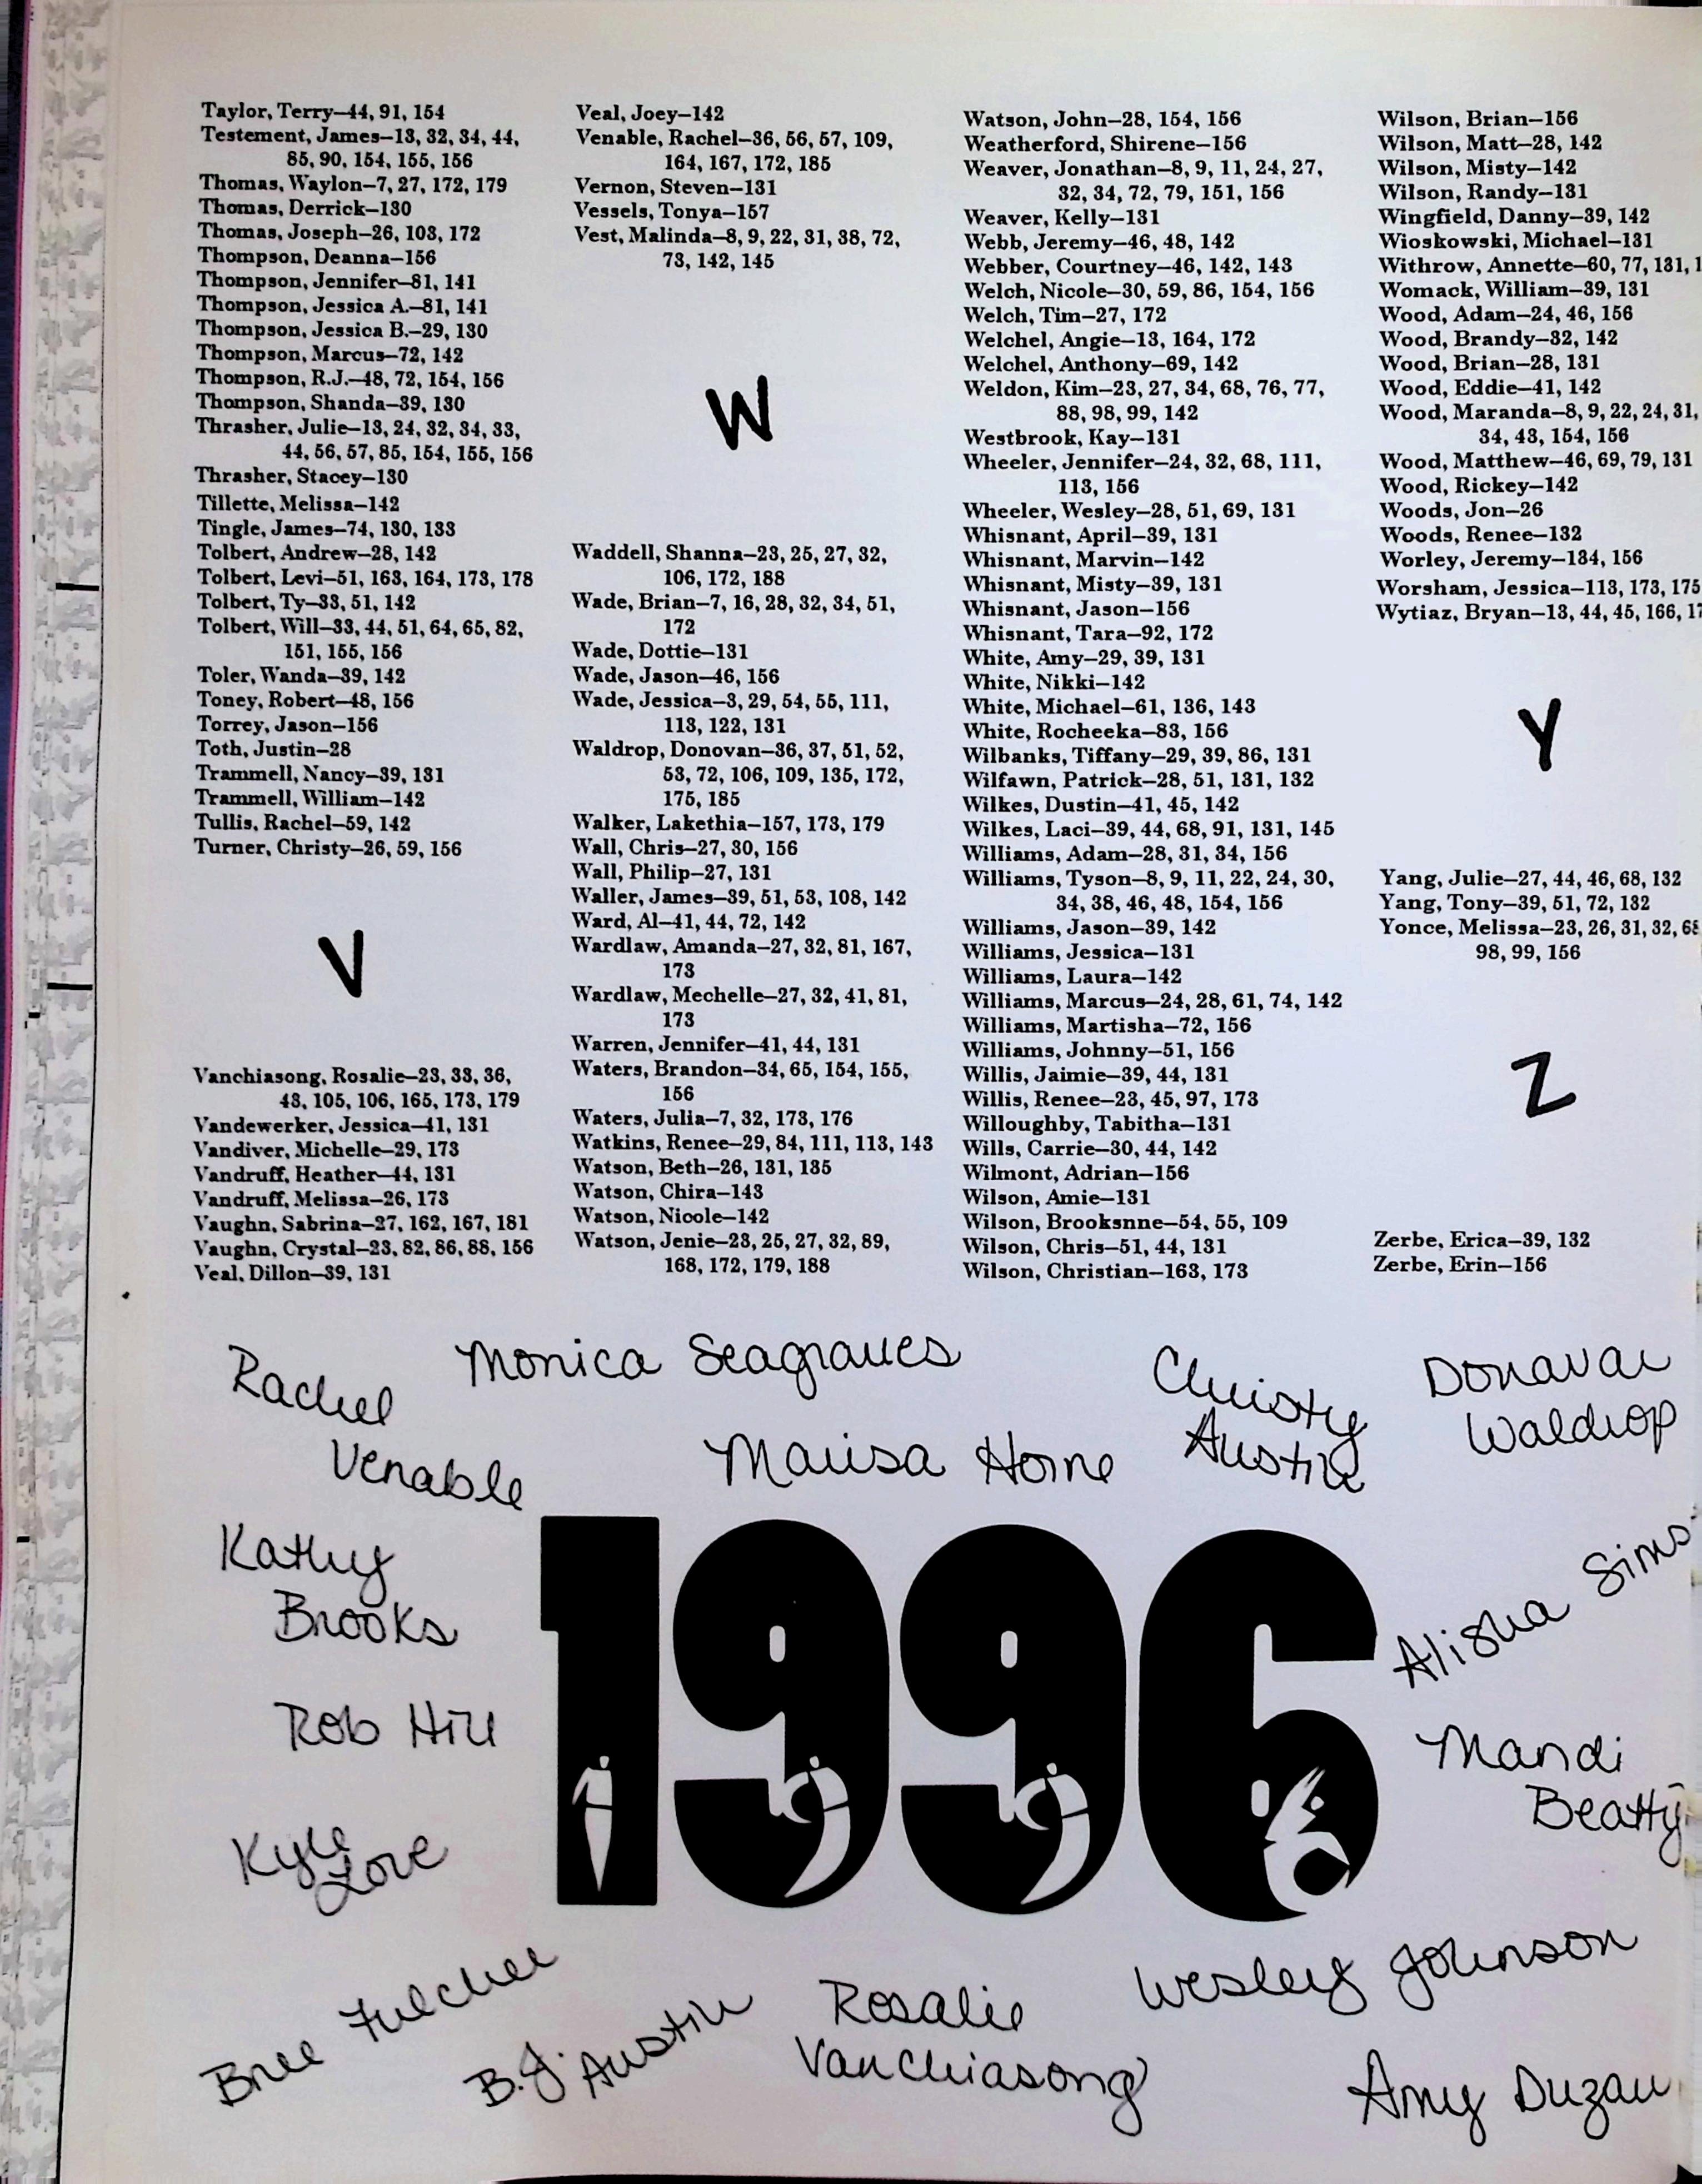 Taylor, Terry–44, 91, 154
Testement, James–13, 32, 34, 44,
85, 90, 154, 155, 156
Thomas, Waylon–7, 27, 172, 179
Thomas, Derrick–130
Thomas, Joseph–26, 103, 172
Thompson, Deanna–156
Thompson, Jennifer–81, 141
Thompson, Jessica A.–81, 141
Thompson, Jessica B.–29, 130
Thompson, Marcus–72, 142
Thompson, R.J.–48, 72, 154, 156
Thompson, Shanda–39, 130
Thrasher, Julie–13, 24, 32, 34, 33,
44, 56, 57, 85, 154, 155, 156
Thrasher, Stacey–130
Tillette, Melissa–142
Tingle, James–74, 130, 133
Tolbert, Andrew–28, 142
Tolbert, Levi–51, 163, 164, 173, 178
Tolbert, Ty–33, 51, 142
Tolbert, Will–33, 44, 51, 64, 65, 82,
151, 155, 156
Toler, Wanda–39, 142
Toney, Robert–48, 156
Torrey, Jason–156
Toth, Justin–28
Trammell, Nancy–39, 131
Trammell, William–142
Tullis, Rachel–59, 142
Turner, Christy–26, 59, 156
V
Vanchiasong, Rosalie–23, 33, 36,
43, 105, 106, 165, 173, 179
Vandewerker, Jessica–41, 131
Vandiver, Michelle–29, 173
Vandruff, Heather–44, 131
Vandruff, Melissa–26, 173
Vaughn, Sabrina–27, 162, 167, 181
Vaughn, Crystal–23, 82, 86, 88, 156
Veal, Dillon–39, 131
Veal, Joey–142
Venable, Rachel–36, 56, 57, 109,
164, 167, 172, 185
Vernon, Steven–131
Vessels, Tonya–157
Vest, Malinda–8, 9, 22, 31, 38, 72,
73, 142, 145
W
Waddell, Shanna–23, 25, 27, 32,
106, 172, 188
Wade, Brian–7, 16, 28, 32, 34, 51,
172
Wade, Dottie–131
Wade, Jason–46, 156
Wade, Jessica–3, 29, 54, 55, 111,
113, 122, 131
Waldrop, Donovan–36, 37, 51, 52,
53, 72, 106, 109, 135, 172,
175, 185
Walker, Lakethia–157, 173, 179
Wall, Chris–27, 30, 156
Wall, Philip–27, 131
Waller, James–39, 51, 53, 108, 142
Ward, Al–41, 44, 72, 142
Wardlaw, Amanda–27, 32, 81, 167,
173
Wardlaw, Mechelle–27, 32, 41, 81,
173
Warren, Jennifer–41, 44, 131
Waters, Brandon–34, 65, 154, 155,
156
Waters, Julia–7, 32, 173, 176
Watkins, Renee–29, 84, 111, 113, 143
Watson, Beth–26, 131, 135
Watson, Chira–143
Watson, Nicole–142
Watson, Jenie–23, 25, 27, 32, 89,
168, 172, 179, 188
Watson, John–28, 154, 156
Weatherford, Shirene–156
Weaver, Jonathan–8, 9, 11, 24, 27,
32, 34, 72, 79, 151, 156
Weaver, Kelly–131
Webb, Jeremy–46, 48, 142
Webber, Courtney–46, 142, 143
Welch, Nicole–30, 59, 86, 154, 156
Welch, Tim–27, 172
Welchel, Angie–13, 164, 172
Welchel, Anthony–69, 142
Weldon, Kim–23, 27, 34, 68, 76, 77,
88, 98, 99, 142
Westbrook, Kay–131
Wheeler, Jennifer–24, 32, 68, 111,
113, 156
Wheeler, Wesley–28, 51, 69, 131
Whisnant, April–39, 131
Whisnant, Marvin–142
Whisnant, Misty–39, 131
Whisnant, Jason–156
Whisnant, Tara–92, 172
White, Amy–29, 39, 131
White, Nikki–142
White, Michael–61, 136, 143
White, Rocheeka–83, 156
Wilbanks, Tiffany–29, 39, 86, 131
Wilfawn, Patrick–28, 51, 131, 132
Wilkes, Dustin–41, 45, 142
Wilkes, Laci–39, 44, 68, 91, 131, 145
Williams, Adam–28, 31, 34, 156
Williams, Tyson–8, 9, 11, 22, 24, 30,
34, 38, 46, 48, 154, 156
Williams, Jason–39, 142
Williams, Jessica–131
Williams, Laura–142
Williams, Marcus–24, 28, 61, 74, 142
Williams, Martisha–72, 156
Williams, Johnny–51, 156
Willis, Jaimie–39, 44, 131
Willis, Renee–23, 45, 97, 173
Willoughby, Tabitha–131
Wills, Carrie–30, 44, 142
Wilmont, Adrian–156
Wilson, Amie–131
Wilson, Brooksnne–54, 55, 109
Wilson, Chris–51, 44, 131
Wilson, Christian–163, 173
Wilson, Brian–156
Wilson, Matt–28, 142
Wilson, Misty–142
Wilson, Randy–131
Wingfield, Danny–39, 142
Wioskowski, Michael–131
Withrow, Annette–60, 77, 131,
Womack, William–39, 131
Wood, Adam–24, 46, 156
Wood, Brandy–32, 142
Wood, Brian–28, 131
Wood, Eddie–41, 142
Wood, Maranda–8, 9, 22, 24, 31,
34, 43, 154, 156
Wood, Matthew–46, 69, 79, 131
Wood, Rickey–142
Woods, Jon–26
Woods, Renee–132
Worley, Jeremy–134, 156
Worsham, Jessica–113, 173, 175
Wytiaz, Bryan–13, 44, 45, 166,
Y
Yang, Julie–27, 44, 46, 68, 132
Yang, Tony–39, 51, 72, 132
Yonce, Melissa–23, 26, 31, 32,
98, 99, 156
Z
Zerbe, Erica–39, 132
Zerbe, Erin–156
Rachel
Venable
Monica Seagraves
Marisa Horne
Christy
Austin
Donavan
Waldrop
Kathy
Brooks
Rob Hill
Kyle
Love
1996
Alisha Sims
Mandi
Beatty
Bree Fulcher
B.J. Austin
Rosalie
Vanchiasong
Wesley Johnson
Amy Duzan